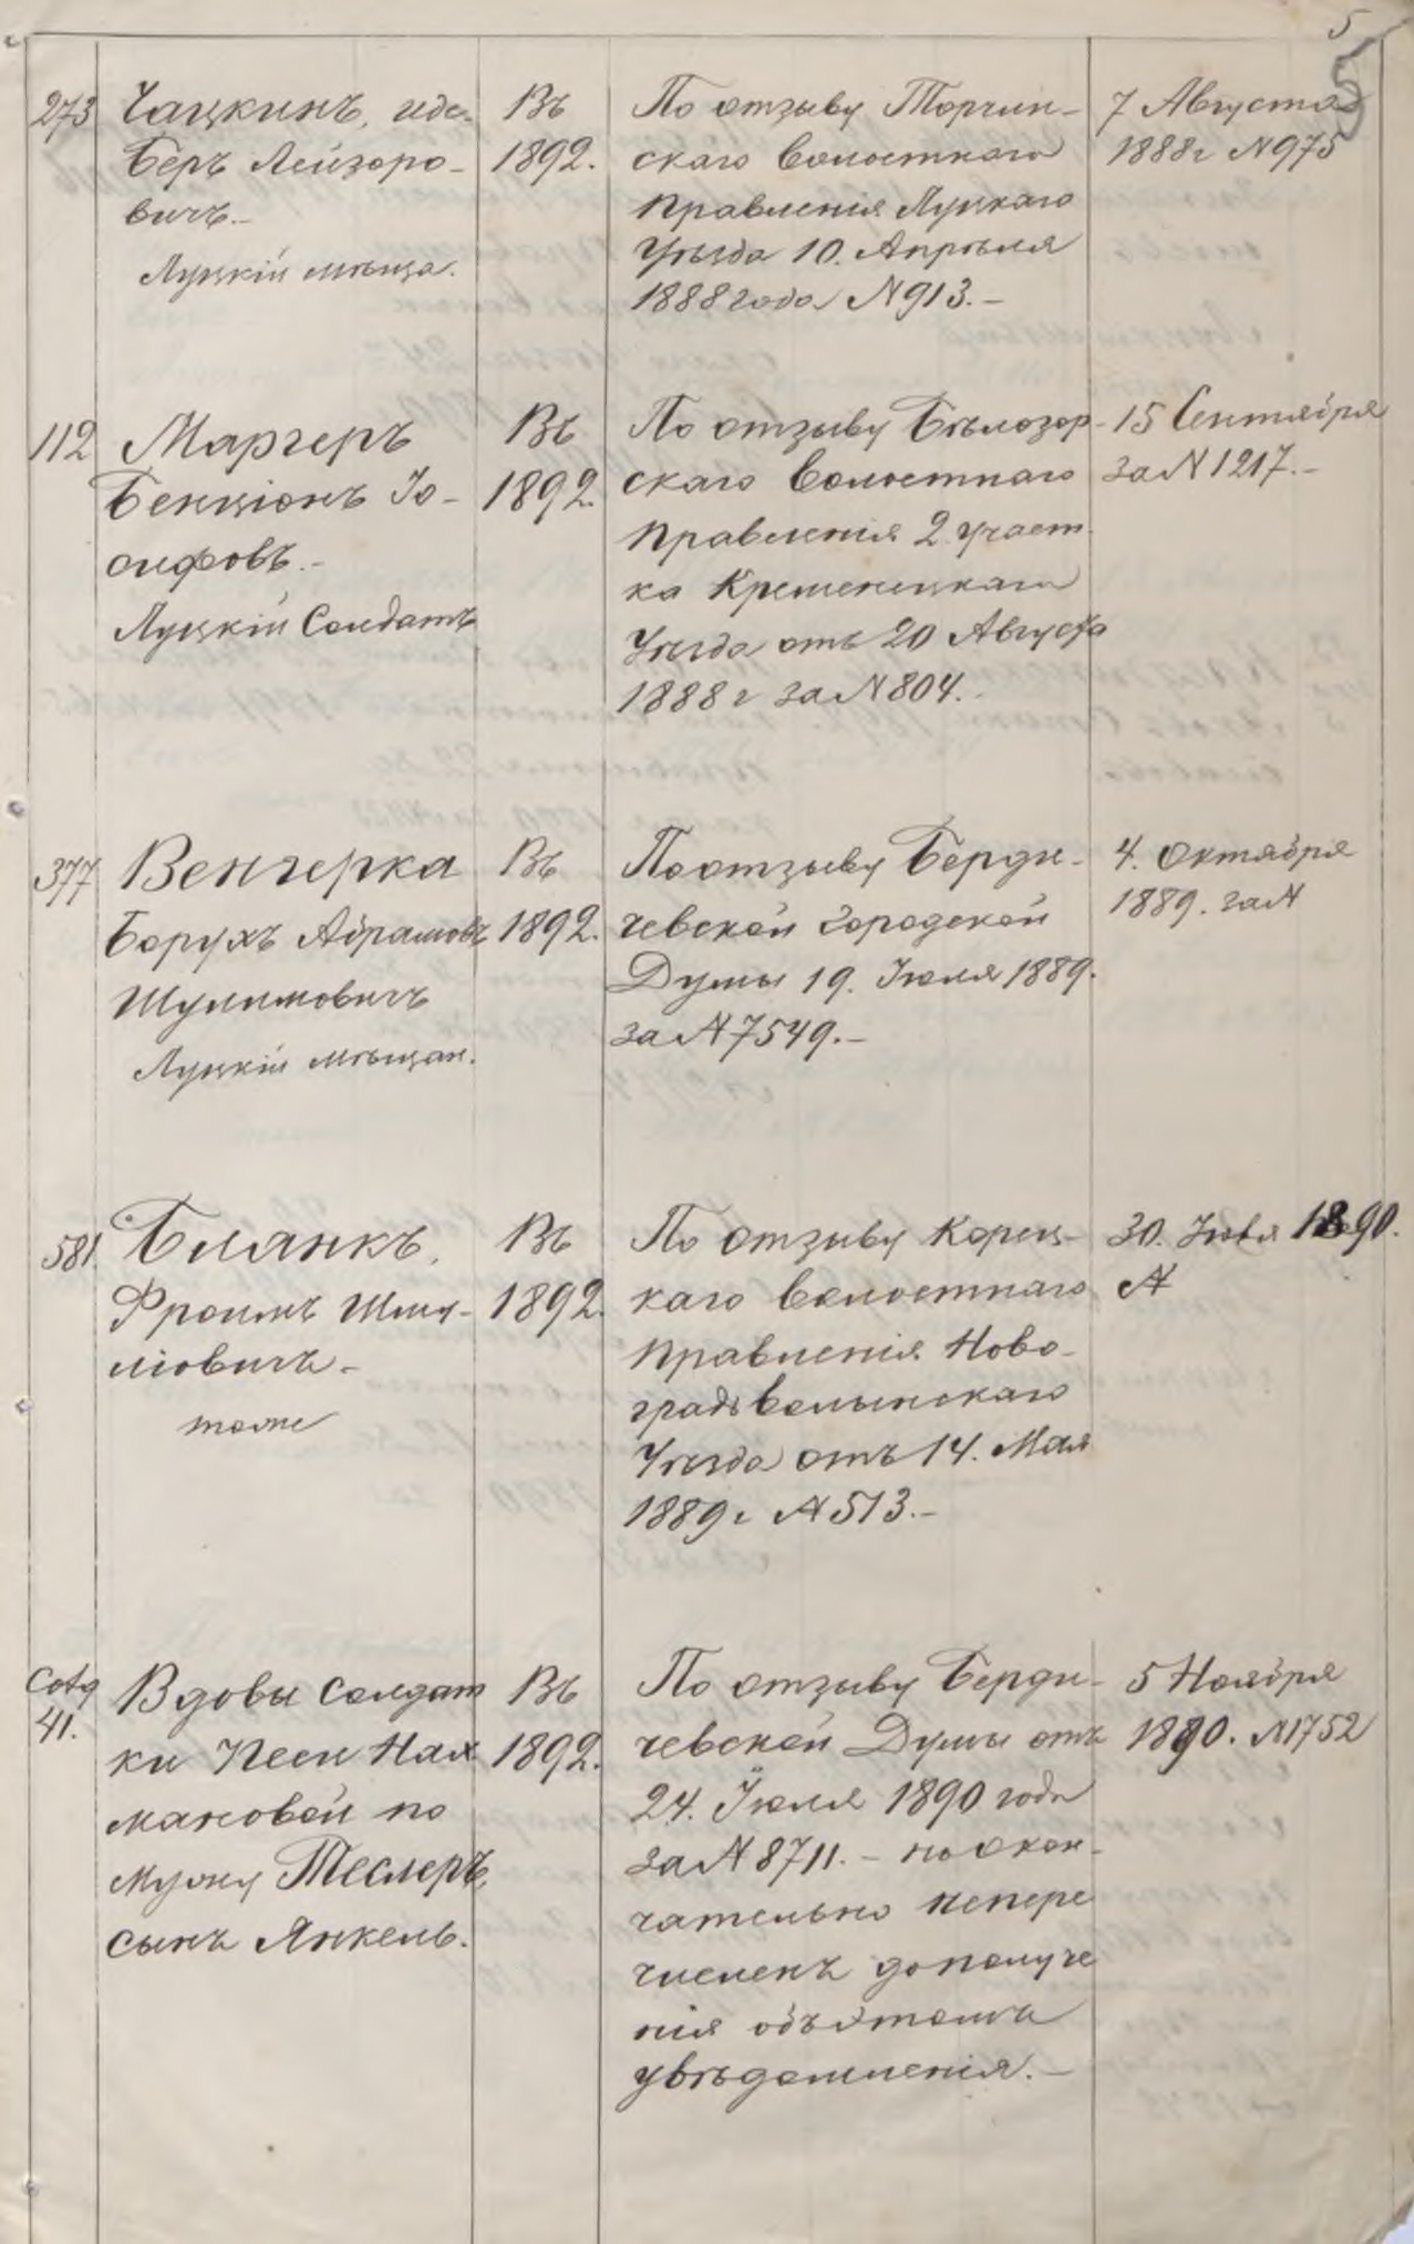 5
5
273
Чацкинъ, иде-
Беръ Лейзоро-
вичъ.-
Луцкій мѣща.
Въ
1892.
По отзыву Торчин-
скаго Волостнаго
Правленія Луцкаго
Уѣзда 10. Апрѣля
1888 года N 913.-
7 Августа
1888 г N 975
112
Маргеръ
Бенціонъ Іо-
сифовъ.-
Луцкій Солдатъ
Въ
1892.
По отзыву Бѣлозор-
скаго Волостнаго
Правленія 2 участ.
ка Кременецкаго
Уѣзда отъ 20 Августа
1888 г за N 804.
15 Сентября
за N 1217.-
377
Венгерка
Борухъ Абрамовъ
Шулимовичъ
Луцкій мѣщан.
Въ
1892.
По отзыву Берди-
чевской Городской
Думы 19. Іюля 1889.
за N 7549.-
4. Октября
1889. за N
581
Бланкъ,
Фроимъ Шму-
ліовичъ-
тоже
Въ
1892.
По отзыву Корец-
каго Волостнаго
Правленія Ново-
градъ Волынскаго
Уѣзда отъ 14. Мая
1889 г N 513.-
30. 1890.
N
41.
Вдовы Солдат
ки Песи Нах
мановой по
мужу Теслеръ,
сынъ Янкель.
Въ
1892.
По отзыву Берди-
чевской Думы отъ
24. Іюля 1890 года
за N 8711.- но окон-
чательно непере
численъ до получе
нія объ этомъ
увѣдомленія.-
5 Ноября
1890. N 1752